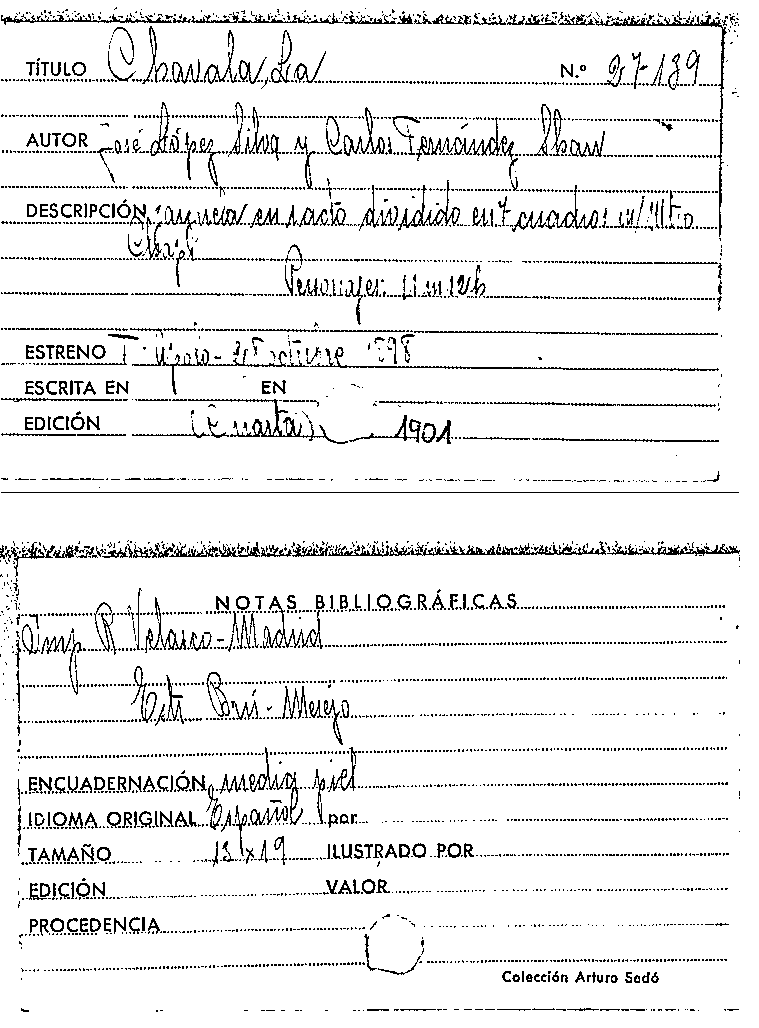 TÍTULO Chavala, La N.º 27139
AUTOR José López Silva y Carlos Fernández Shaw
DESCRIPCIÓN zarzuela en 1 acto dividido en 7 cuadros
Chapí
Personajes: 11 m 12 h
ESTRENO T. Apolo - 28 octubre 1898
ESCRITA EN EN
EDICIÓN (Cuarta) 1901
NOTAS BIBLIOGRÁFICAS
Imp R Velasco - Madrid
ENCUADERNACIÓN media piel
IDIOMA ORIGINAL Español por
TAMAÑO 13 x 19 ILUSTRADO POR
EDICIÓN VALOR
PROCEDENCIA
Colección Arturo Sedó